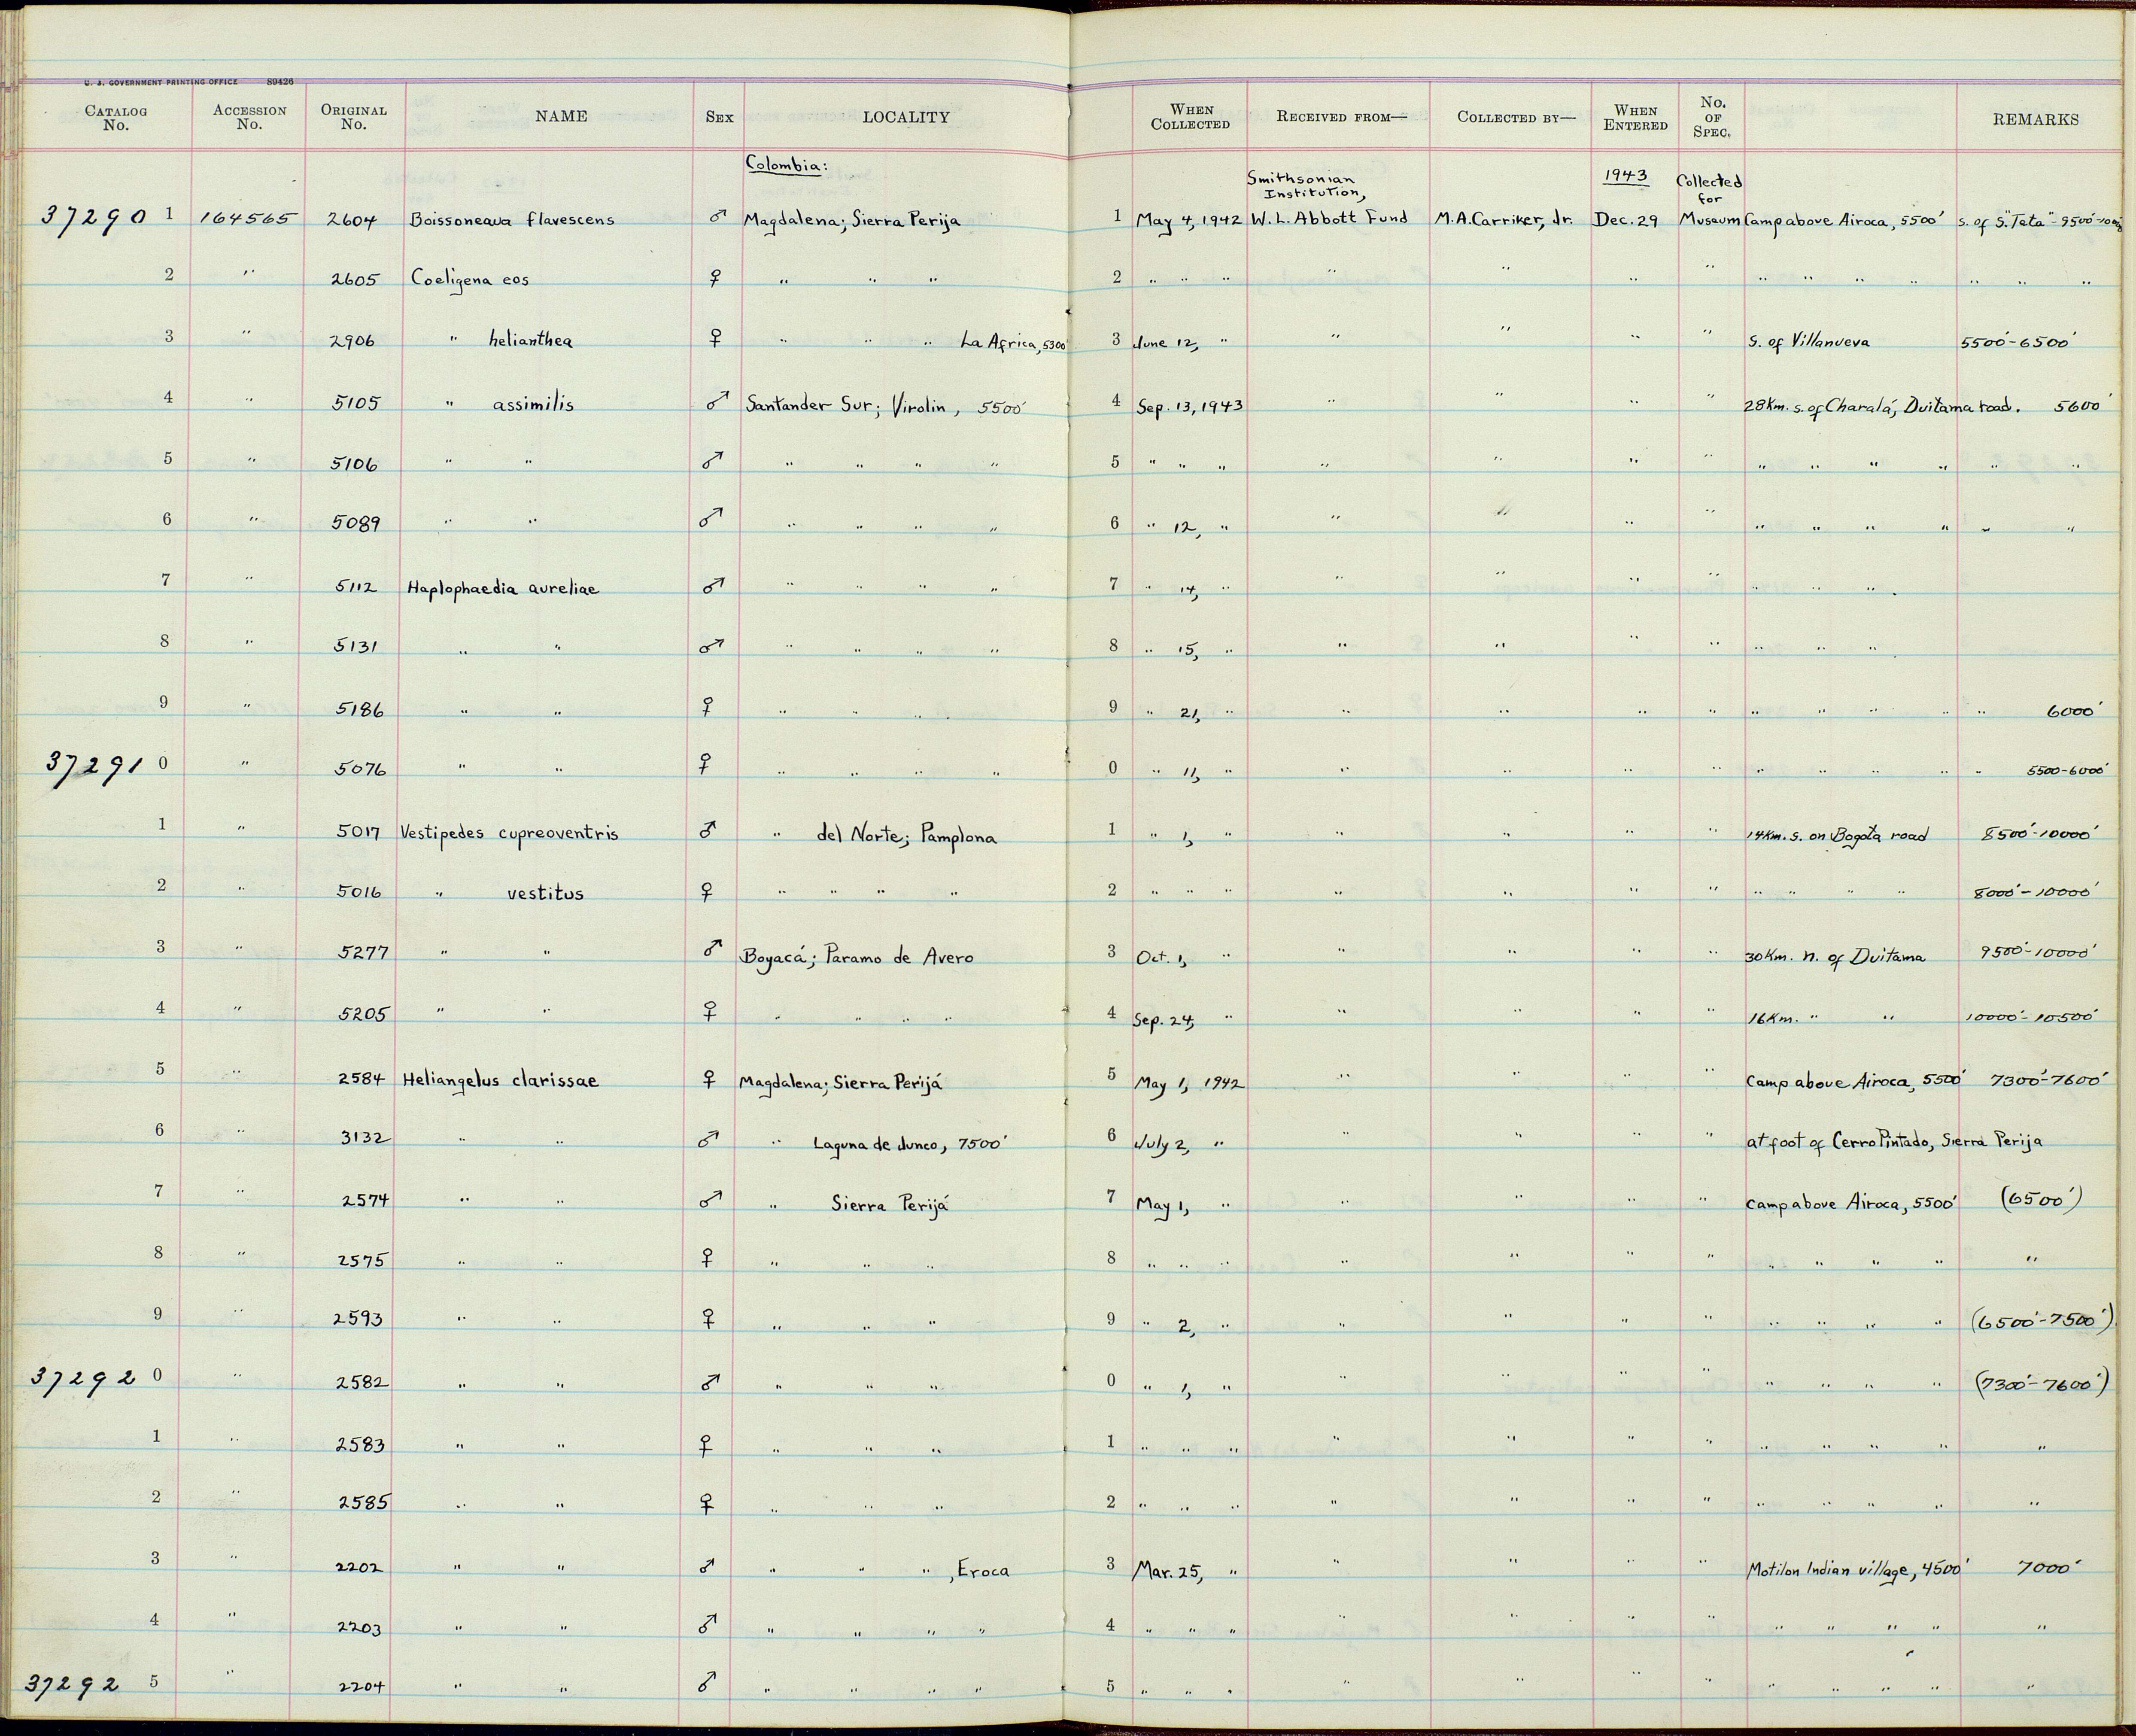 U. S. GOVERNMENT PRINTING OFFICE 89426
CATALOG No. ACCESSION No. ORIGINAL No. NAME SEX LOCALITY WHEN COLLECTED RECEIVED FROM— COLLECTED BY— WHEN ENTERED No. OF SPEC. REMARKS
Colombia:
Smithsonian Institution, 1943 Collected for
37290 1 164565 2604 Boissoneaua flavescens ♂ Magdalena; Sierra Perija 1 May 4, 1942 W. L. Abbott Fund M.A. Carriker, Jr. Dec. 29 Museum Camp above Airoca, 5500' s. of S. "Teta" - 9500'
2 " 2605 Coeligena eos ♀ " " " 2 " " " " " " " " " " " " " "
3 " 2906 " helianthea ♀ " " " La Africa, 5300' 3 June 12, " " " " " S. of Villanueva 5500'-6500'
4 " 5105 " assimilis ♂ Santander Sur; Virolin, 5500' 4 Sep. 13, 1943 " " " " 28 Km. s. of Charalá, Duitama road. 5600'
5 " 5106 " " ♂ " " " " 5 " " " " " " " " " " " " "
6 " 5089 " " ♂ " " " " 6 " 12, " " " " " " " " " " "
7 " 5112 Haplophaedia aureliae ♂ " " " " 7 " 14, " " " " " " " " .
8 " 5131 " " ♂ " " " " 8 " 15, " " " " " " " " .
9 " 5186 " " ♀ " " " . 9 " 21, " " " " " " " " " " 6000'
37291 0 " 5076 " " ♀ " " " " 0 " 11, " " " " " " " " " " 5500-6000'
1 " 5017 Vestipedes cupreoventris ♂ " del Norte; Pamplona 1 " 1, " " " " " 14 Km. s. on Bogota road 8500'-10000'
2 " 5016 " vestitus ♀ " " " " 2 " " " " " " " " " " " 8000'-10000'
3 " 5277 " " ♂ Boyacá; Paramo de Avero 3 Oct. 1, " " " " " 30 Km. n. of Duitama 9500'-10000'
4 " 5205 " " ♀ " " " " 4 Sep. 24, " " " " " 16 Km. " " 10000'-10500'
5 " 2584 Heliangelus clarissae ♀ Magdalena; Sierra Perijá 5 May 1, 1942 " " " " Camp above Airoca, 5500' 7300'-7600'
6 " 3132 " " ♂ " Laguna de Junco, 7500' 6 July 2, " " " " " at foot of Cerro Pintado, Sierra Perija
7 " 2574 " " ♂ " Sierra Perijá 7 May 1, " " " " " Camp above Airoca, 5500' (6500')
8 " 2575 " " ♀ " " " 8 " " " " " " " " " " " "
9 " 2593 " " ♀ " " " 9 " 2, " " " " " " " " " (6500'-7500')
37292 0 " 2582 " " ♂ " " " 0 " 1, " " " " " " " " " (7300'-7600')
1 " 2583 " " ♀ " " " 1 " " " " " " " " " " " "
2 " 2585 " " ♀ " " " 2 " " " " " " " " " " " "
3 " 2202 " " ♂ " " " , Eroca 3 Mar. 25, " " " " " Motilon Indian village, 4500' 7000'
4 " 2203 " " ♂ " " " " 4 " " " " " " " " " " " "
37292 5 " 2204 " " ♂ " " " " 5 " " " " " " " " " " " "